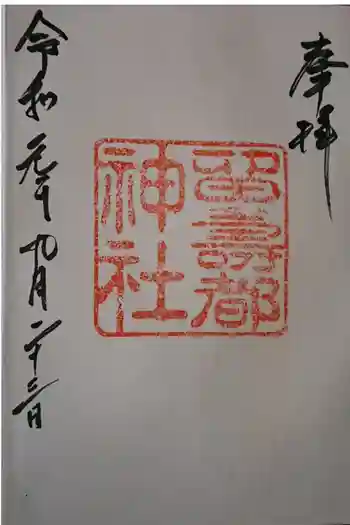 奉拝
留寿都
神社
令和元年九月二十三日